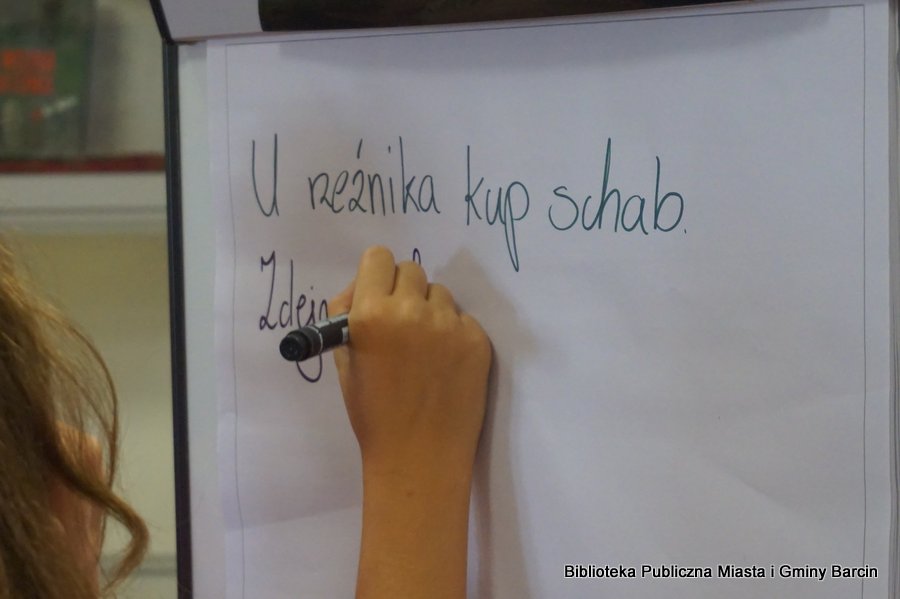 U rzeźnika kup schab.
Biblioteka Publiczna Miasta i Gminy Barcin